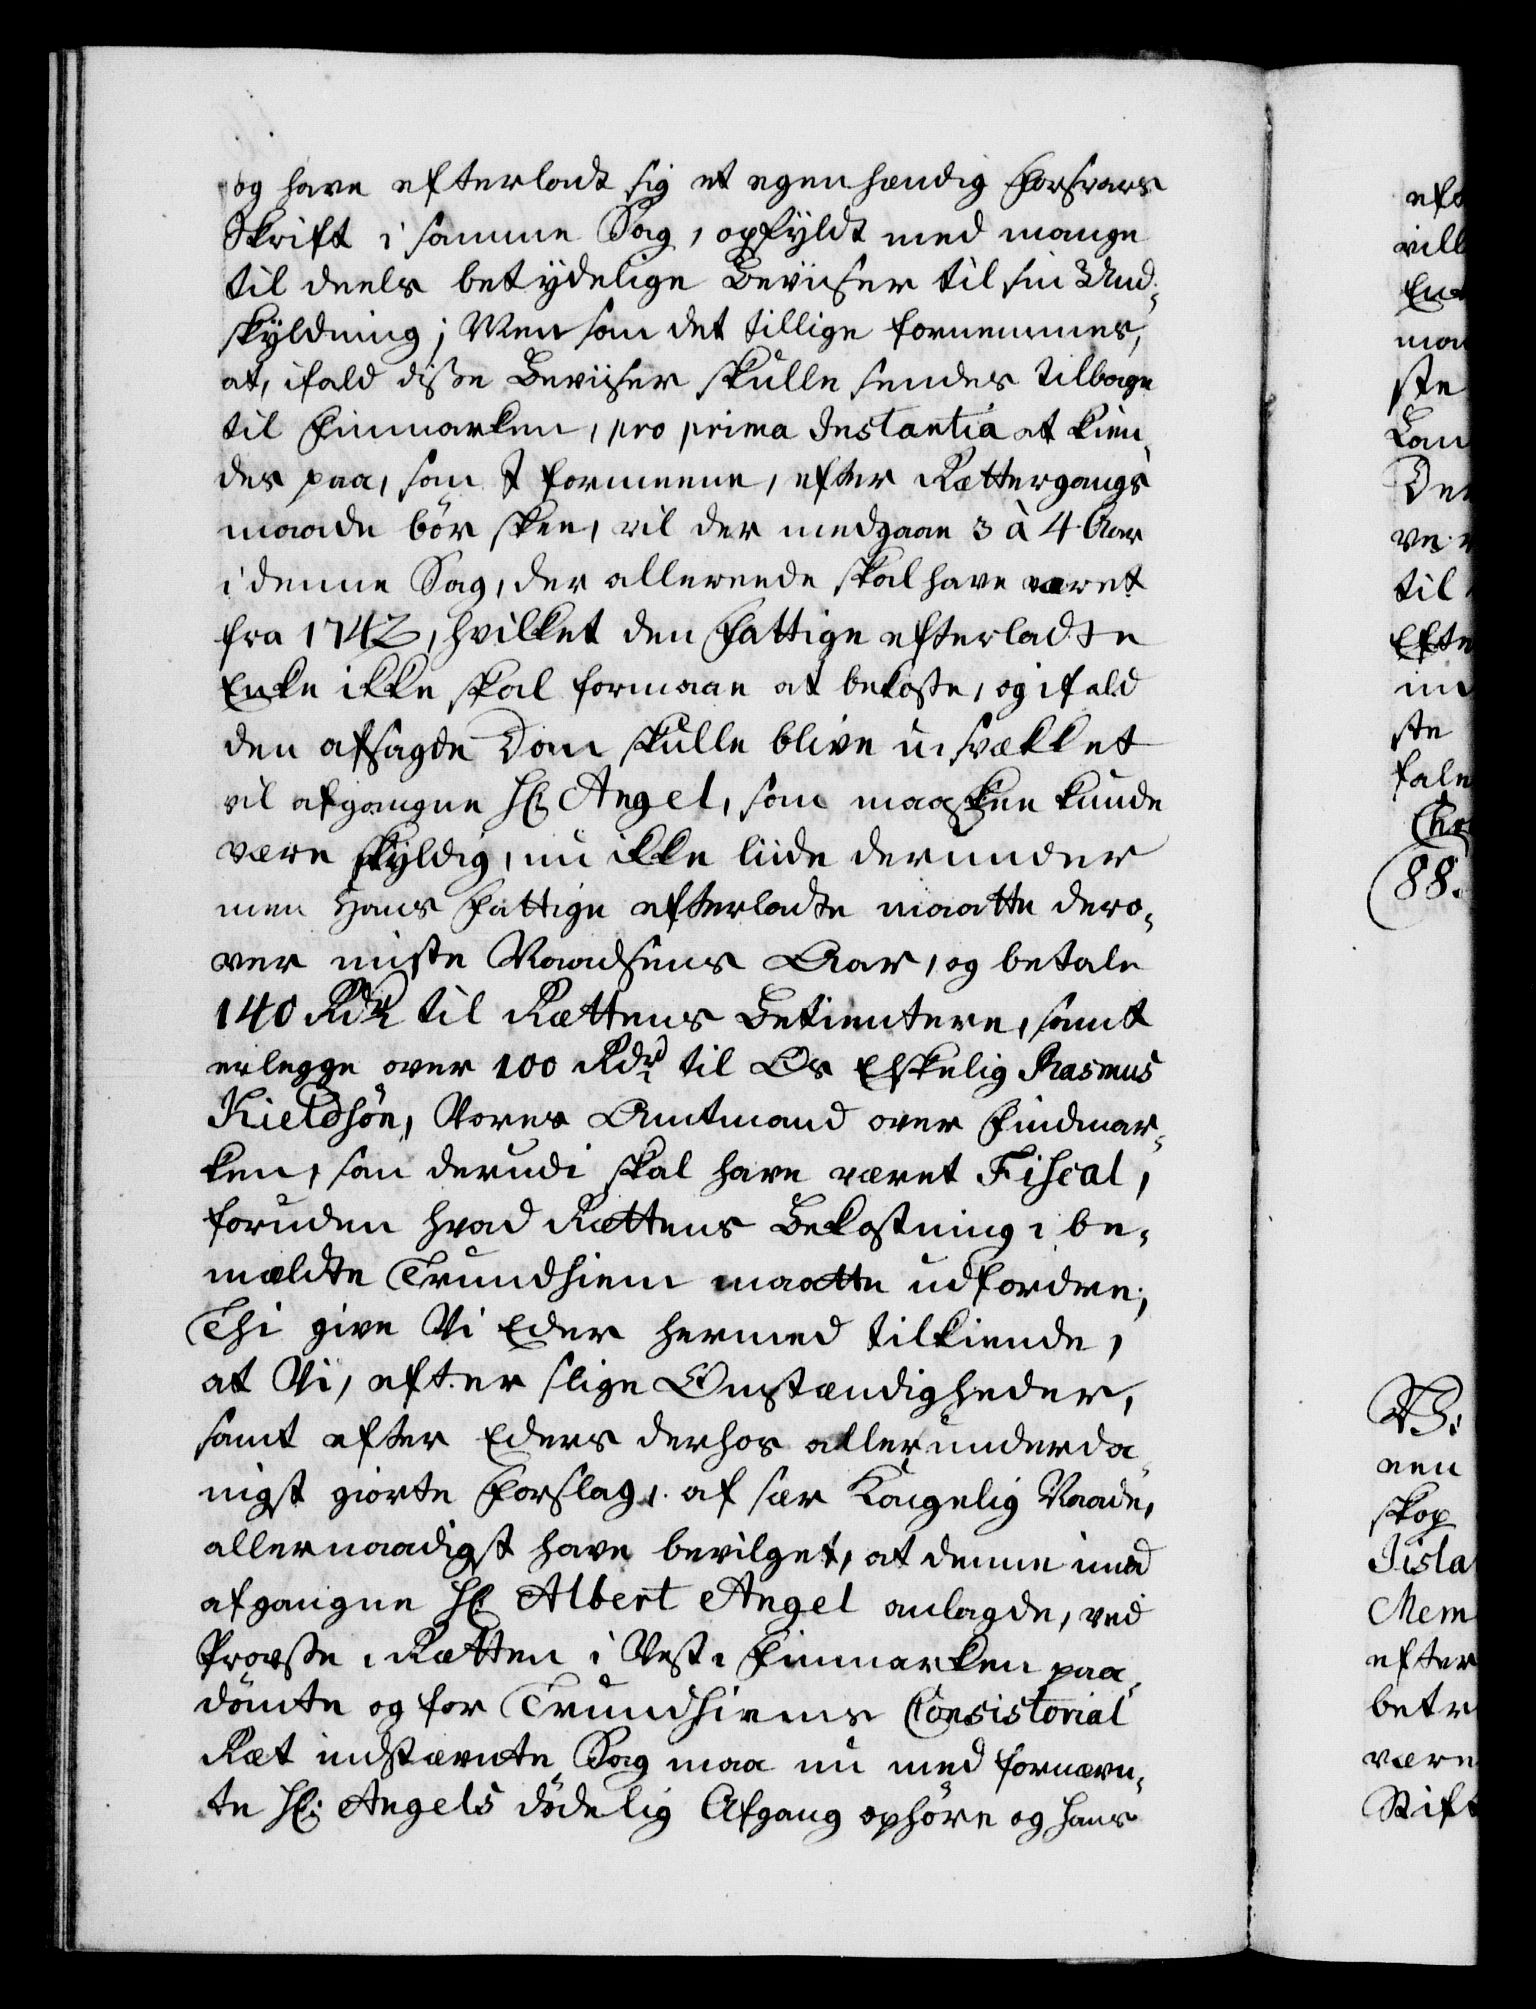 og have efterladt sig et egenhændig Forsvars
Skrift i samme Sag, opfyldt med mange
til deels betydelige Beviiser til sin Und-
skyldning; Men som det tillige fornemmes,
at, ifald disse Beviiser skulle sendes tilbage
til Finmarken, pro prima Instantia at kien-
des paa, som I formeene, efter Rættergangs
maade bör skee, vil der medgaae 3 à 4 Aar
i denne Sag, der allereede skal have været
fra 1742, hvilket den Fattige efterladte
Enke ikke skal formaae at bekoste, og ifald
den afsagde Dom skulle blive usvækket
vil afgangne Hr. Angel, som maaskee kunde
være skyldig, nu ikke liide derunder
men Hans Fattige efterladte maatte dero-
ver miste Naadsens Aar, og betale
140 Rdr til Rættens Betientere, samt
erlegge over 100 Rdr til Os Elskelig Rasmus
Kieldsön, Vores Amtmand over Findmar-
ken, som derudi skal have været Fiscal,
foruden hvad Rættens Bekostning i be-
mældte Trundhiem maatte udfordre;
Thi give Vi Eder hermed tilkiende,
at Vi, efter slige Omstændigheder,
samt efter Eders derhos allerunderda-
nigst giorte Forslag, af sær Kongelig Naade,
allernaadigst have bevilget, at denne imod
afgangne Hr. Albert Angel anlagde, ved
Provste-Rætten i Vest-Finmarken paa-
dömte og for Trundhiems Consistorial
Ræt indstævnte Sag maa nu med fornævn-
te Hr. Angels dödelig Afgang ophöre og hans
vill
ste
til
Efte
ste
fale
88.
nen
skop
Jisla
Mem
efter
betr
være
Stift